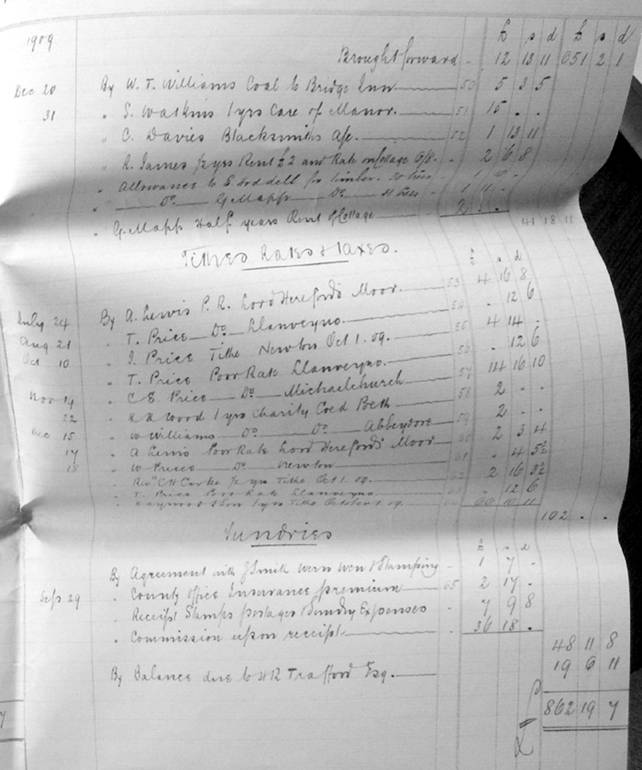 £ s d £ s d
1909 Brought forward - 12 13 11 651 2 1
Dec 20 By W. T. Williams Coal to Bridge Inn 50 5 3 5
31 " S. Watkins 1 yrs Care of Manor 51 15 - -
" C. Davies Blacksmiths A/c 52 1 13 11
" R. James ½ yrs Rent £2 and Rate on Cottage 6/8 - 2 6 8
" Allowance to for timber 10 trees
" Do G. Mapp Do 11 trees - 1 11 -
" G. Mapp Half years Rent of Cottage 2 - - 41 18 11
Tithes Rates & Taxes.
£ s d
July 24 By A. Lewis P. R. Lord Hereford's Moor 53 4 16 8
Aug 21 " T. Price Do Llanveyno 54 - 12 6
Oct 10 " J. Price Tithe Newton Oct 1. 09. 55 4 14 -
" T. Price Poor Rate Llanveyno 56 - 12 6
Nov 14 " C E. Price Do Michaelchurch 57 16 10
22 " Wood 1 yrs Charity Coed Poeth 58 2 - -
Dec 15 " W Williams Do Do Abbeydore 59 2 - -
17 " A Lewis Poor Rate Lord Hereford's Moor 60 2 3 4
18 " W Price Do Newton - 4 5½
" Revd C H ½ yrs Tithe Oct 1. 09. 2 16 3½
" T. Price Poor Rate Llanveyno - 12 6
" & Son 1 yrs Tithe October 1. 09. 10 11
102 - -
Sundries
£ s d
By Agreement with J Smith Wern Wen & Stamping - 1 7 -
Sep. 29 " County Office Insurance premium 65 2 17 -
" Receipt Stamps postages & Sundry Expenses - 7 9 8
" Commission upon receipt - 36 18 -
48 11 8
By Balance due to H R Trafford Esq. 19 6 11
£ 862 19 7